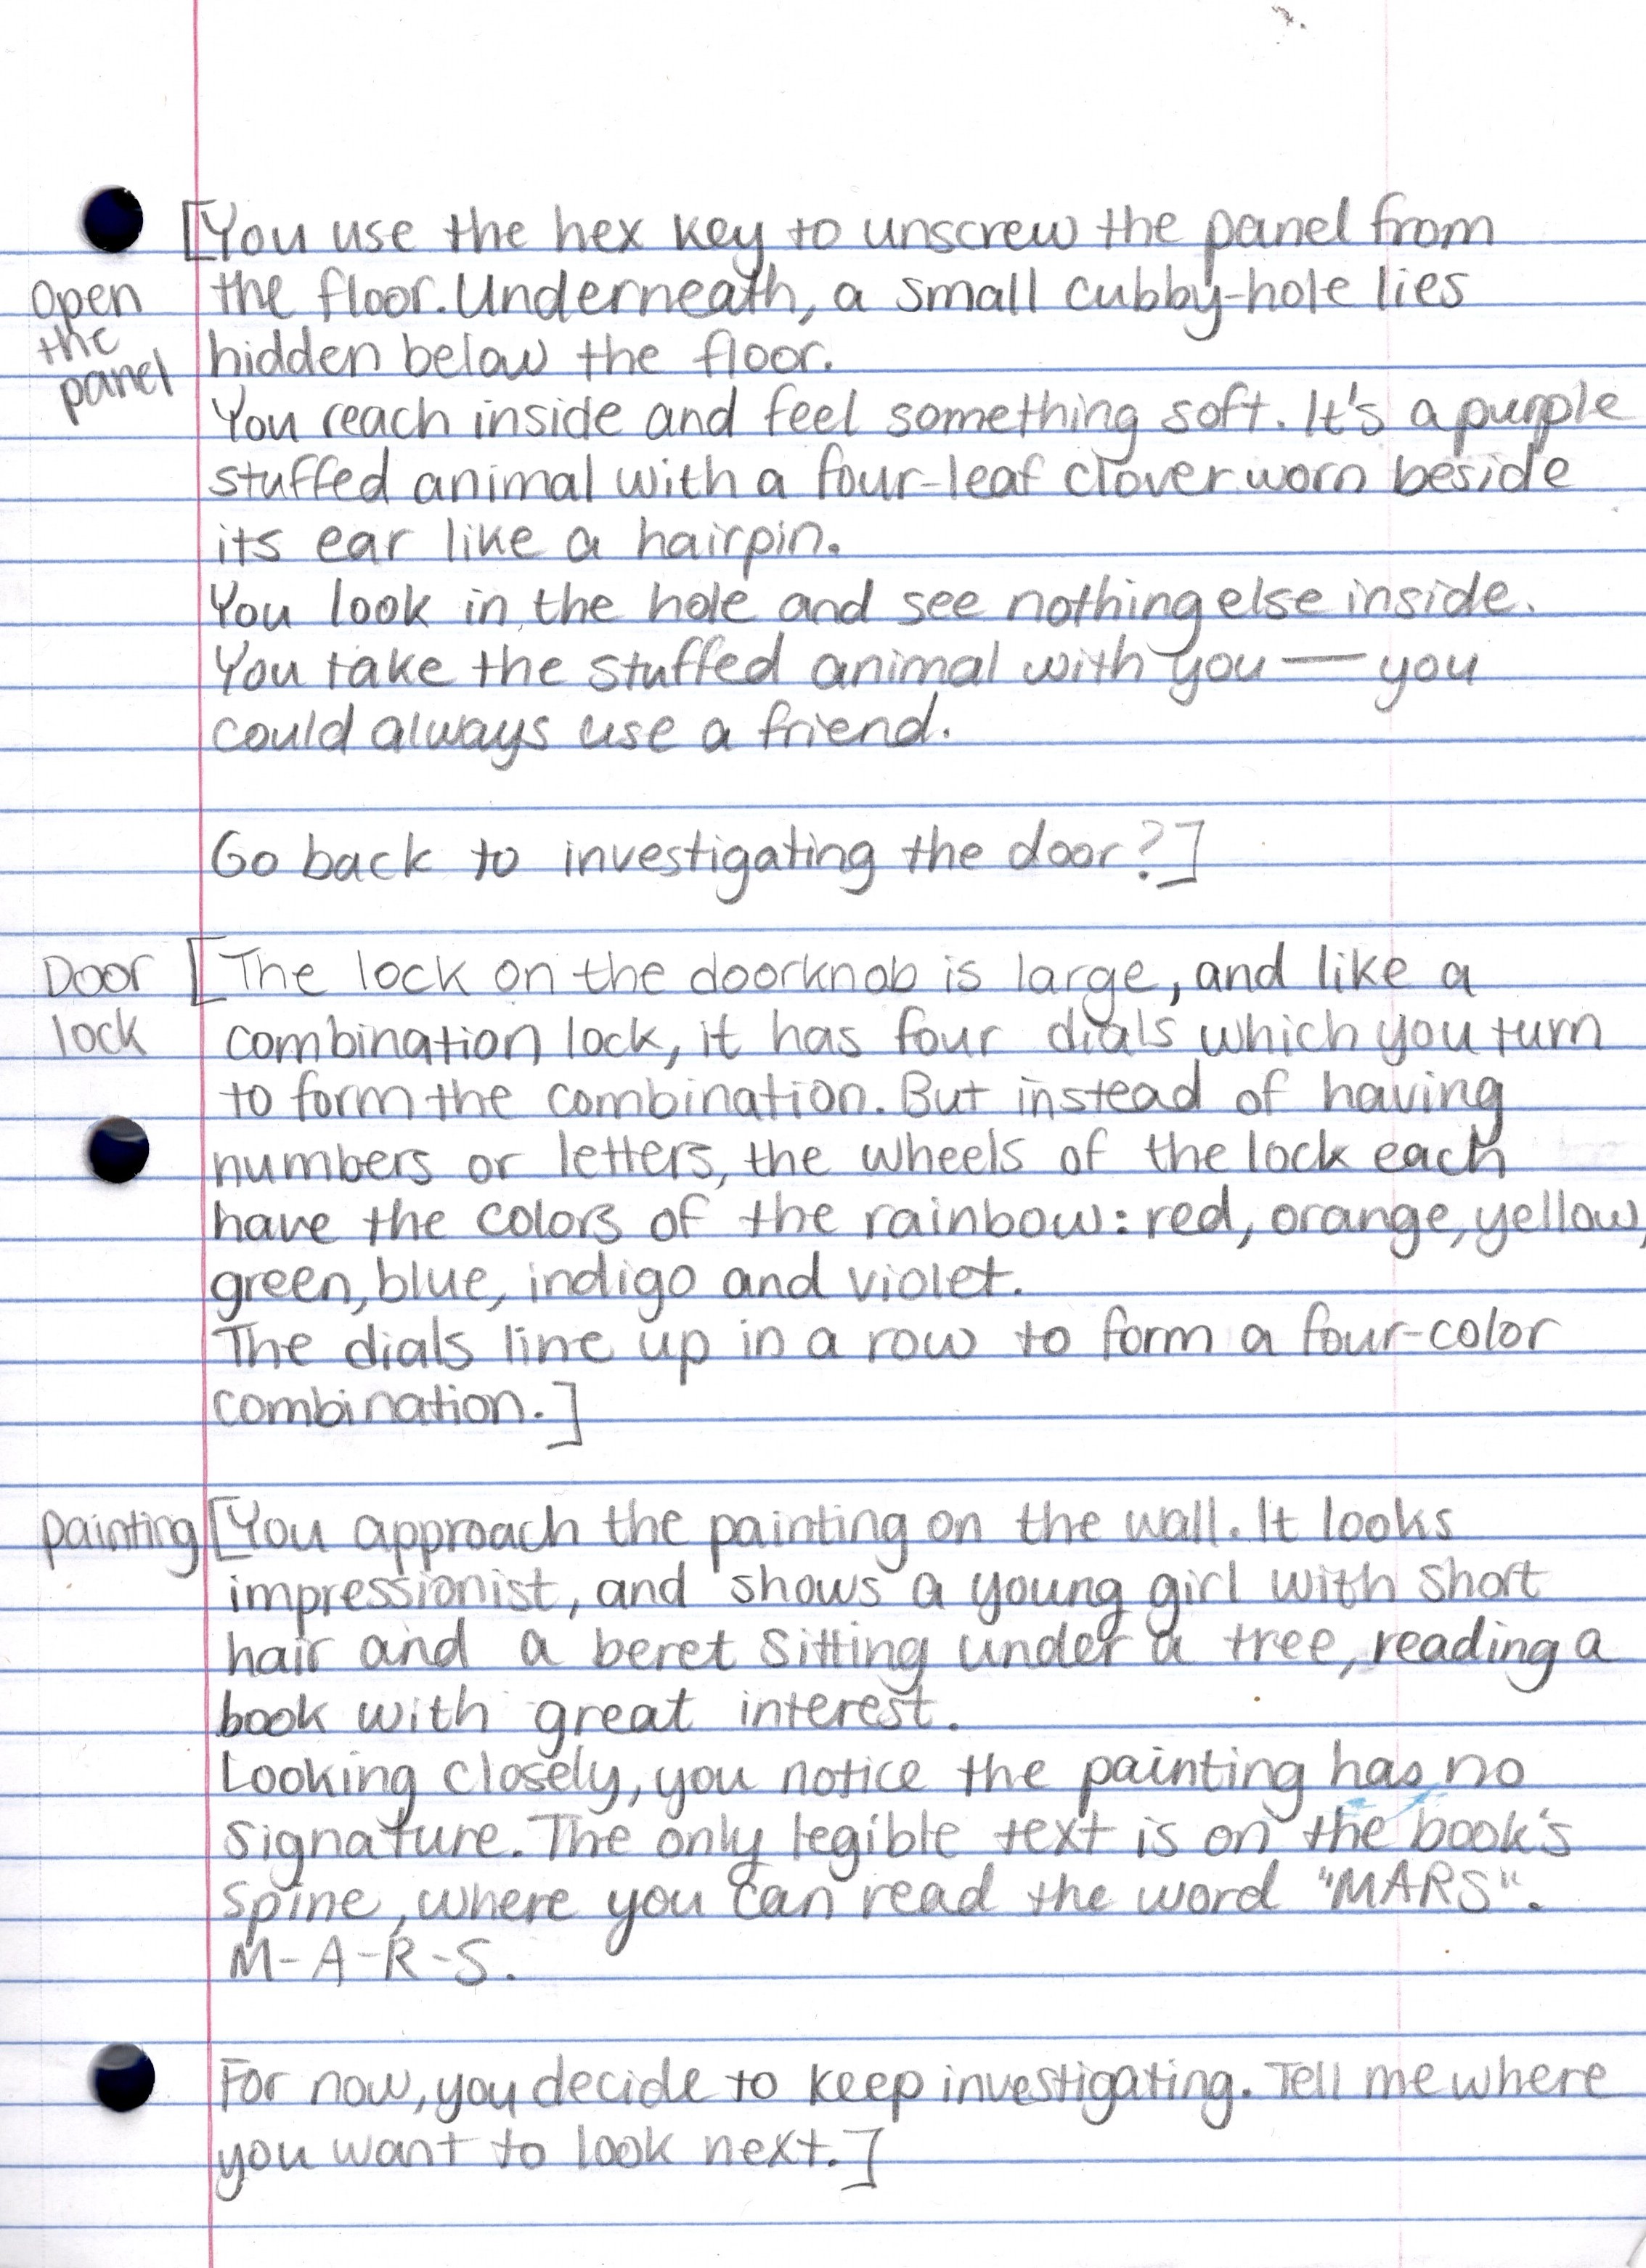 [You use the hex key to unscrew the panel from
Open the floor. Underneath, a small cubby-hole lies
the
hidden below the floor.
panel
You reach inside and feel something soft. It's a purple
stuffed animal with a four-leaf clover worn beside
its ear like a hairpin.
You look in the hole and see nothing else inside.
You take the stuffed animal with you — you
could always use a friend.
Go back to investigating the door?]
Door [The lock on the doorknob is large, and like a
lock combination lock, it has four dials which you turn
to form the combination. But instead of having
numbers or letters, the wheels of the lock each
have the colors of the rainbow: red, orange, yellow,
green, blue, indigo and violet.
The dials line up in a row to form a four-color
combination.]
painting [You approach the painting on the wall. It looks
impressionist, and shows a young girl with short
hair and a beret sitting under a tree, reading a
book with great interest.
Looking closely, you notice the painting has no
signature. The only legible text is on the book's
spine, where you can read the word "MARS".
M-A-R-S.
For now, you decide to keep investigating. Tell me where
you want to look next.]